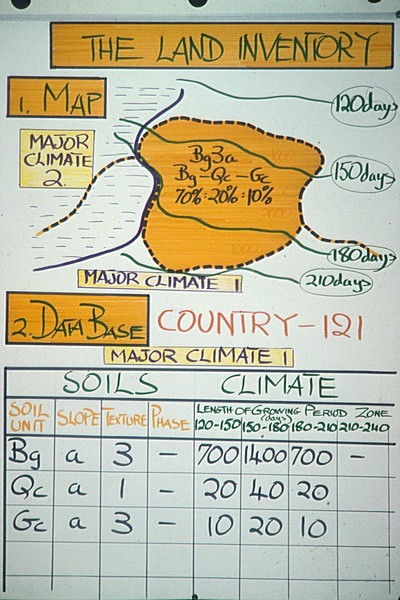 THE LAND INVENTORY
1. MAP
120days
MAJOR
CLIMATE
2.
Bg3a
Bg-Qc-Gc
70%:20%:10%
150days
180days
210days
MAJOR CLIMATE 1
2. DATA BASE
COUNTRY-121
MAJOR CLIMATE 1
SOILS CLIMATE
SOIL UNIT SLOPE TEXTURE PHASE LENGTH OF GROWING PERIOD ZONE
(days)
120-150 150-180 180-210 210-240
Bg a 3 - 700 1400 700 -
Qc a 1 - 20 40 20
Gc a 3 - 10 20 10